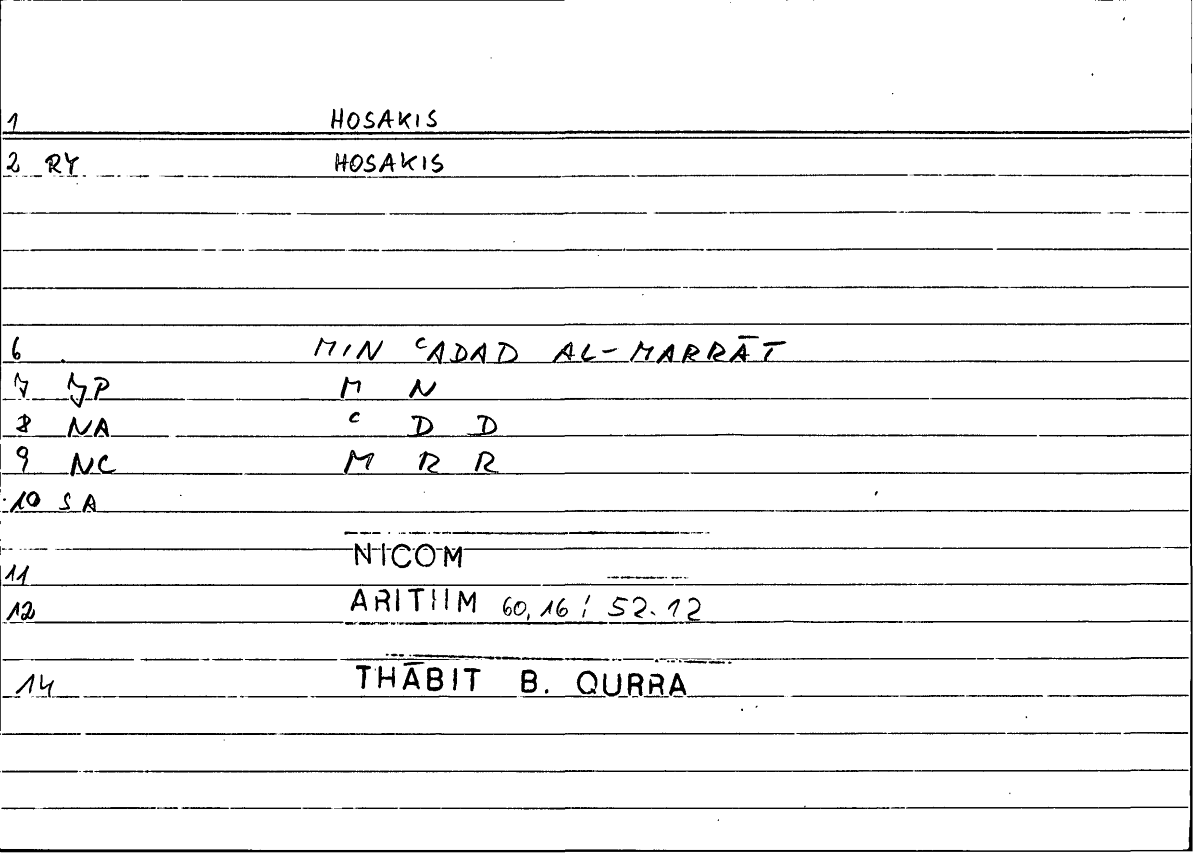 1 HOSAKIS
2 RY HOSAKIS
6 MIN ᶜADAD AL-MARRĀT
7 JP M N
8 NA ᶜ D D
9 NC M R R
10 SA
11 NICOM
12 ARITHM 60,16 ; 52.12
14 THĀBIT B. QURRA